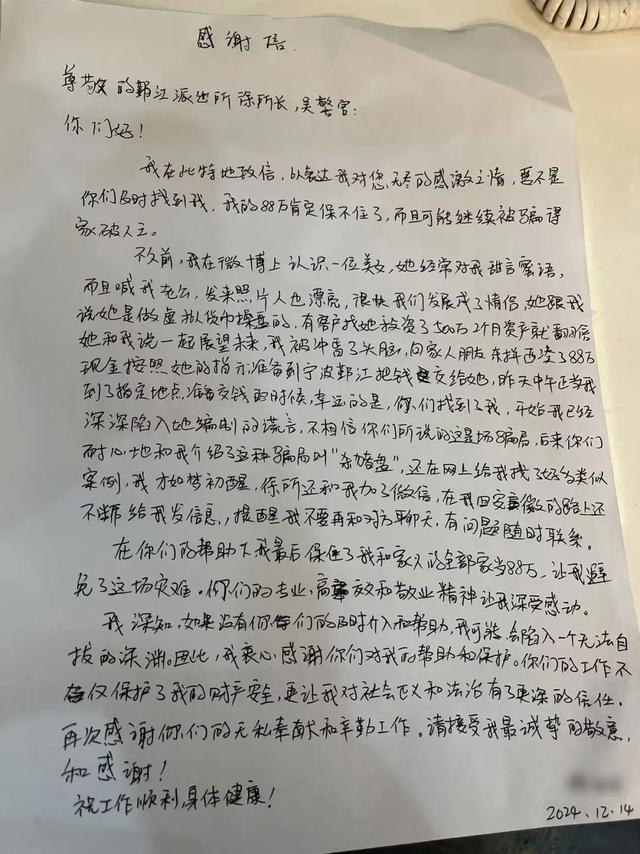 感谢信
尊敬的鄞江派出所徐所长,吴警官:
你们好!
我在此特地致信,以表达我对您无尽的感激之情,要不是
你们及时找到我,我的88万肯定保不住了,而且可能继续被骗得
家破人亡。
不久前,我在微博上认识一位美女,她经常对我甜言蜜语,
而且喊我老公,发来照片人也漂亮,很快我们发展成了情侣,她跟我
说她是做虚拟货币操盘的,有客户找她投资了500万2个月资产就翻倍
她和我说一起展望未来,我被冲昏了头脑,向家人朋友东拼西凑了88万
现金按照她的指示准备到宁波鄞江把钱交给她,昨天中午正当我
到了指定地点,准备交钱的时候,幸运的是,你们找到了我,开始我已经
深深陷入她编制的谎言,不相信你们所说的这是场骗局,后来你们
耐心地和我介绍了这种骗局叫“杀猪盘”,还在网上给我找了好多类似
案例,我才如梦初醒,徐所还和我加了微信,在我回安徽的路上还
不断给我发信息,提醒我不要再和对方聊天,有问题随时联系。
在你们的帮助下我最后保住了我和家人的全部家当88万,让我避
免了这场灾难。你们的专业,高效和敬业精神让我深受感动。
我深知,如果没有你们的及时介入和帮助,我可能会陷入一个无法自
拔的深渊。因此,我衷心感谢你们对我的帮助和保护。你们的工作不
仅保护了我的财产安全,更让我对社会正义和法治有了更深的信任。
再次感谢你们的无私奉献和辛勤工作。请接受我最诚挚的敬意
和感谢!
祝工作顺利,身体健康!
2024.12.14